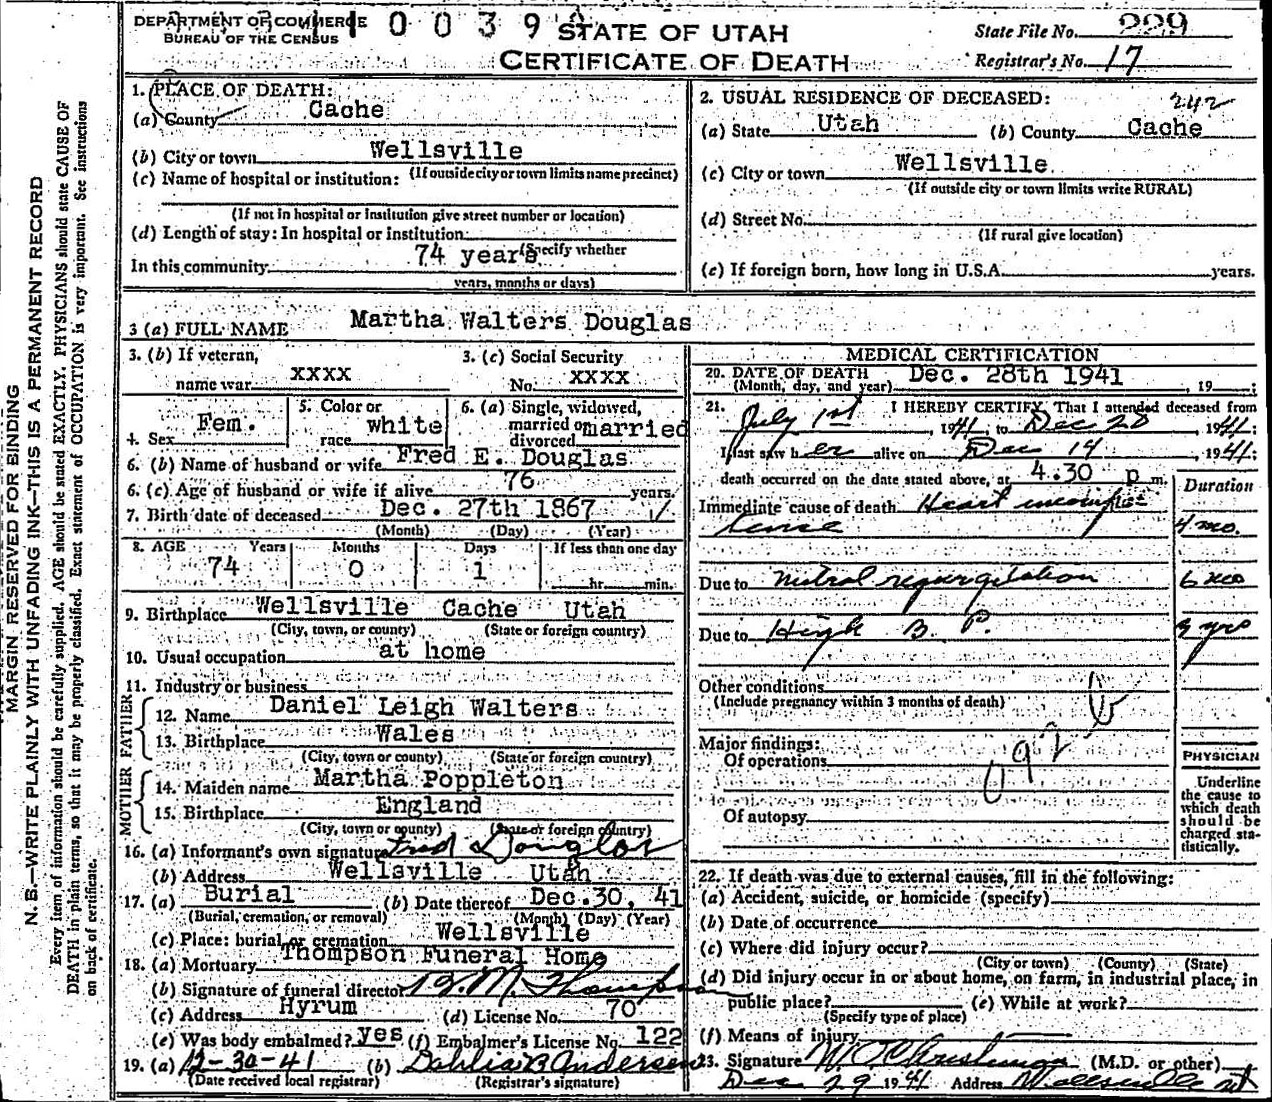 DEPARTMENT OF COMMERCE
BUREAU OF THE CENSUS
0 0 3 9
STATE OF UTAH
CERTIFICATE OF DEATH
State File No. 229
Registrar's No. 17
MARGIN RESERVED FOR BINDING
N. B.—WRITE PLAINLY WITH UNFADING INK—THIS IS A PERMANENT RECORD
Every item of information should be carefully supplied. AGE should be stated EXACTLY. PHYSICIANS should state CAUSE OF
DEATH in plain terms, so that it may be properly classified. Exact statement of OCCUPATION is very important. See instructions
on back of certificate.
1. PLACE OF DEATH:
(a) County Cache
(b) City or town Wellsville
(If outside city or town limits name precinct)
(c) Name of hospital or institution:
(If not in hospital or institution give street number or location)
(d) Length of stay: In hospital or institution
(Specify whether
In this community 74 years
years, months or days)
2. USUAL RESIDENCE OF DECEASED: 242
(a) State Utah (b) County Cache
(c) City or town Wellsville
(If outside city or town limits write RURAL)
(d) Street No.
(If rural give location)
(e) If foreign born, how long in U.S.A. years.
3 (a) FULL NAME Martha Walters Douglas
3. (b) If veteran, name war XXXX
3. (c) Social Security No. XXXX
4. Sex Fem.
5. Color or race white
6. (a) Single, widowed, married or divorced married
6. (b) Name of husband or wife Fred E. Douglas
6. (c) Age of husband or wife if alive 76 years.
7. Birth date of deceased Dec. 27th 1867
(Month) (Day) (Year)
8. AGE Years Months Days If less than one day
74 0 1 hr. min.
9. Birthplace Wellsville Cache Utah
(City, town, or county) (State or foreign country)
10. Usual occupation at home
11. Industry or business
FATHER
12. Name Daniel Leigh Walters
13. Birthplace Wales
(City, town or county) (State or foreign country)
MOTHER
14. Maiden name Martha Poppleton
15. Birthplace England
(City, town or county) (State or foreign country)
16. (a) Informant's own signature Fred Douglas
(b) Address Wellsville Utah
17. (a) Burial (b) Date thereof Dec. 30, 41
(Burial, cremation, or removal) (Month) (Day) (Year)
(c) Place: burial or cremation Wellsville
18. (a) Mortuary Thompson Funeral Home
(b) Signature of funeral director Thompson
(c) Address Hyrum (d) License No. 70
(e) Was body embalmed? yes (f) Embalmer's License No. 122
19. (a) 12-30-41 (b) Dahlia B Andersen
(Date received local registrar) (Registrar's signature)
MEDICAL CERTIFICATION
20. DATE OF DEATH Dec. 28th 1941
(Month, day, and year) , 19 ;
21. I HEREBY CERTIFY, That I attended deceased from
July 1st 1941, to Dec 28 1941;
I last saw her alive on Dec 19 1941;
death occurred on the date stated above, at 4.30 p m.
Duration
Immediate cause of death Heart 4 mo.
Due to Mitral regurgitation 6 mo
Due to High B. P. yrs
Other conditions
(Include pregnancy within 3 months of death)
Major findings:
Of operations
Of autopsy
092
PHYSICIAN
Underline
the cause to
which death
should be
charged sta-
tistically.
22. If death was due to external causes, fill in the following:
(a) Accident, suicide, or homicide (specify)
(b) Date of occurrence
(c) Where did injury occur?
(City or town) (County) (State)
(d) Did injury occur in or about home, on farm, in industrial place, in
public place? (e) While at work?
(Specify type of place)
(f) Means of injury
23. Signature (M.D. or other)
Dec 29 1941 Address Wellsville Ut